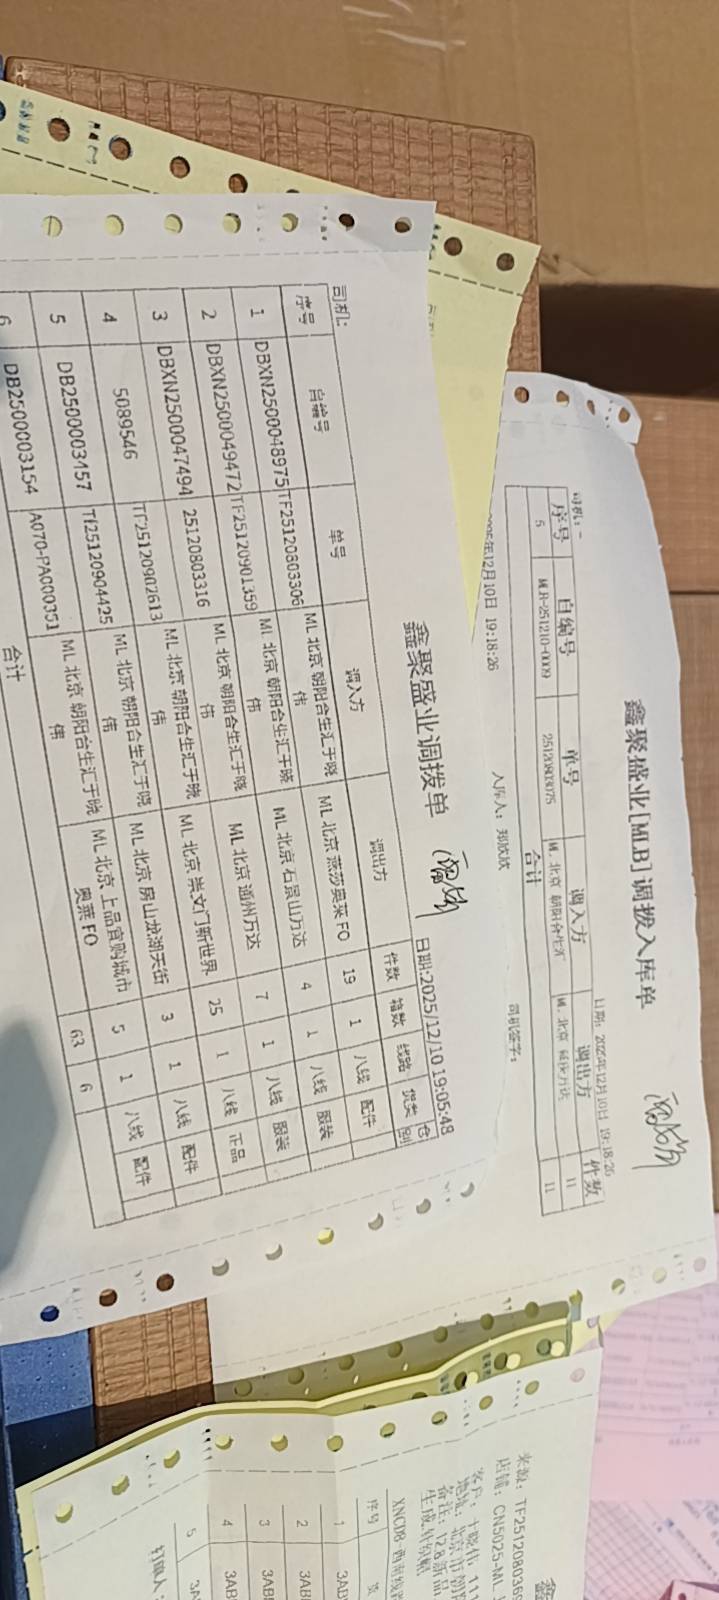 鑫聚盛业[MLB]调拨入库单
司机: 日期: 2025年12月10日 19:18:26
序号 自编号 单号 调入方 调出方 件数
5 MLB-251210-0009 25120803075 ML 北京 朝阳合生汇 11
合计 11
年12月10日 19:18:26 入库人: 司机签字:
鑫聚盛业调拨单
司机: 日期:2025/12/10 19:05:48
序号 自编号 单号 调入方 调出方 件数 箱数 线路 货类 仓别
1 DBXN2500048975 TF25120803306 ML 北京 朝阳合生汇于晓伟 ML 北京 燕莎奥莱 FO 19 1 八线 配件
2 DBXN2500049472 TF25120901359 ML 北京 朝阳合生汇于晓伟 ML 北京 石景山万达 4 1 八线 服装
3 DBXN2500047494 25120803316 ML 北京 朝阳合生汇于晓伟 ML 北京 通州万达 7 1 八线 服装
4 5089546 TF25120902613 ML 北京 朝阳合生汇于晓伟 ML 北京 崇文门新世界 25 1 八线 正品
5 DB2500003457 Tf25120904425 ML 北京 朝阳合生汇于晓伟 ML 北京 房山龙湖天街 3 1 八线 配件
6 DB2500003154 A070-PA000351 ML 北京 朝阳合生汇于晓伟 ML 北京 上品宜购城市奥莱 FO 5 1 八线 配件
合计 63 6
鑫
来源: TF2512080369
店铺: CN5025-ML
客户: 于晓伟, 111
地址: 北京市朝阳
备注: 12.8新品
XNCDB-西南线
序号
1 3AB
2 3AB
3 3AB
4 3AB
5 3A
打单人: